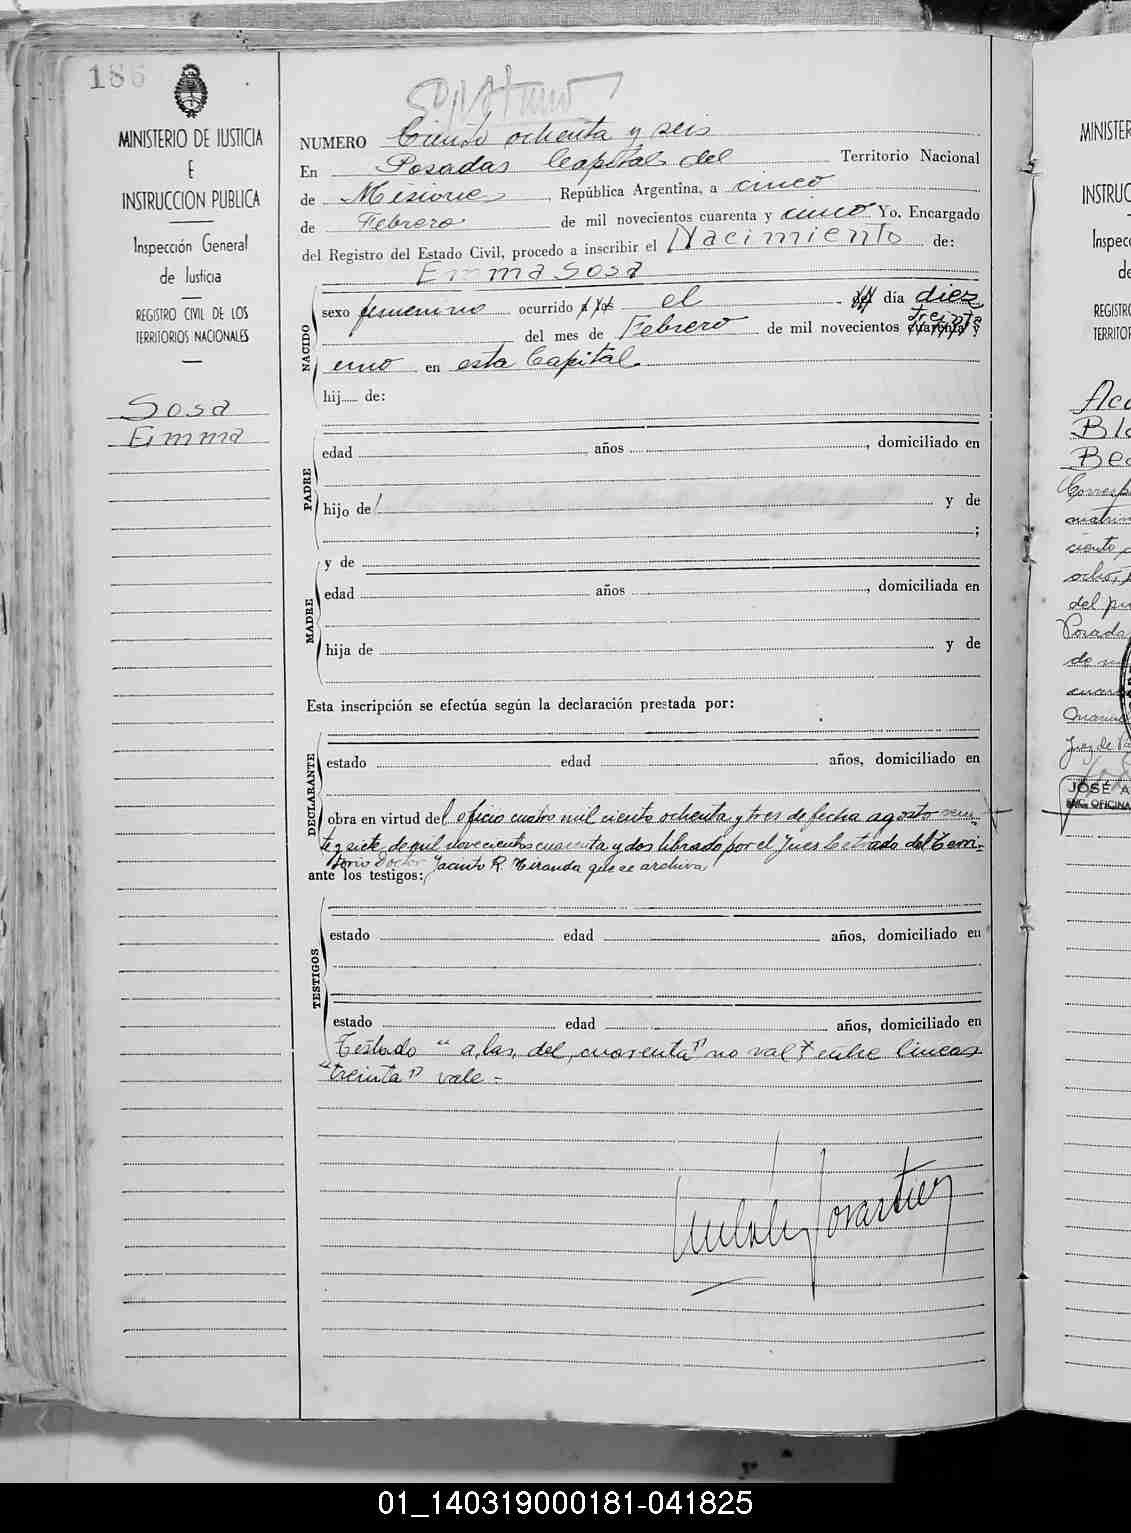 186
MINISTERIO DE JUSTICIA
E
INSTRUCCION PUBLICA
Inspección General
de Justicia
REGISTRO CIVIL DE LOS
TERRITORIOS NACIONALES
Sosa
Emma
NUMERO Ciento ochenta y seis
En Posadas Capital del Territorio Nacional
de Misiones, República Argentina, a cinco
de Febrero de mil novecientos cuarenta y cinco Yo. Encargado
del Registro del Estado Civil, procedo a inscribir el Nacimiento de:
Emma Sosa
NACIDO
sexo femenino ocurrido a las el del día diez
treinta
del mes de Febrero de mil novecientos cuarenta y
uno en esta Capital
hij de:
PADRE
edad años , domiciliado en
hijo de y de
;
MADRE
y de
edad años , domiciliada en
hija de y de
Esta inscripción se efectúa según la declaración prestada por:
DECLARANTE
estado edad años, domiciliado en
obra en virtud del oficio cuatro mil ciento ochenta y tres de fecha agosto vein-
te y siete de mil novecientos cuarenta y dos librado por el Juez Letrado del Terri-
torio Doctor Jacinto R. Miranda que se archiva
ante los testigos:
TESTIGOS
estado edad años, domiciliado en
estado edad años, domiciliado en
Testado "a, las, del, cuarenta" no vale entre lineas
"treinta" vale -
MINISTER
INSTRUC
Inspec
de
REGISTR
TERRITO
Aco
Bla
Bea
Corresp
cuatrim
ciento
ocho,
del pu
Posada
de m
cuare
Manue
Juez de Pa
JOSÉ A
ENC. OFICINA
01_140319000181-041825